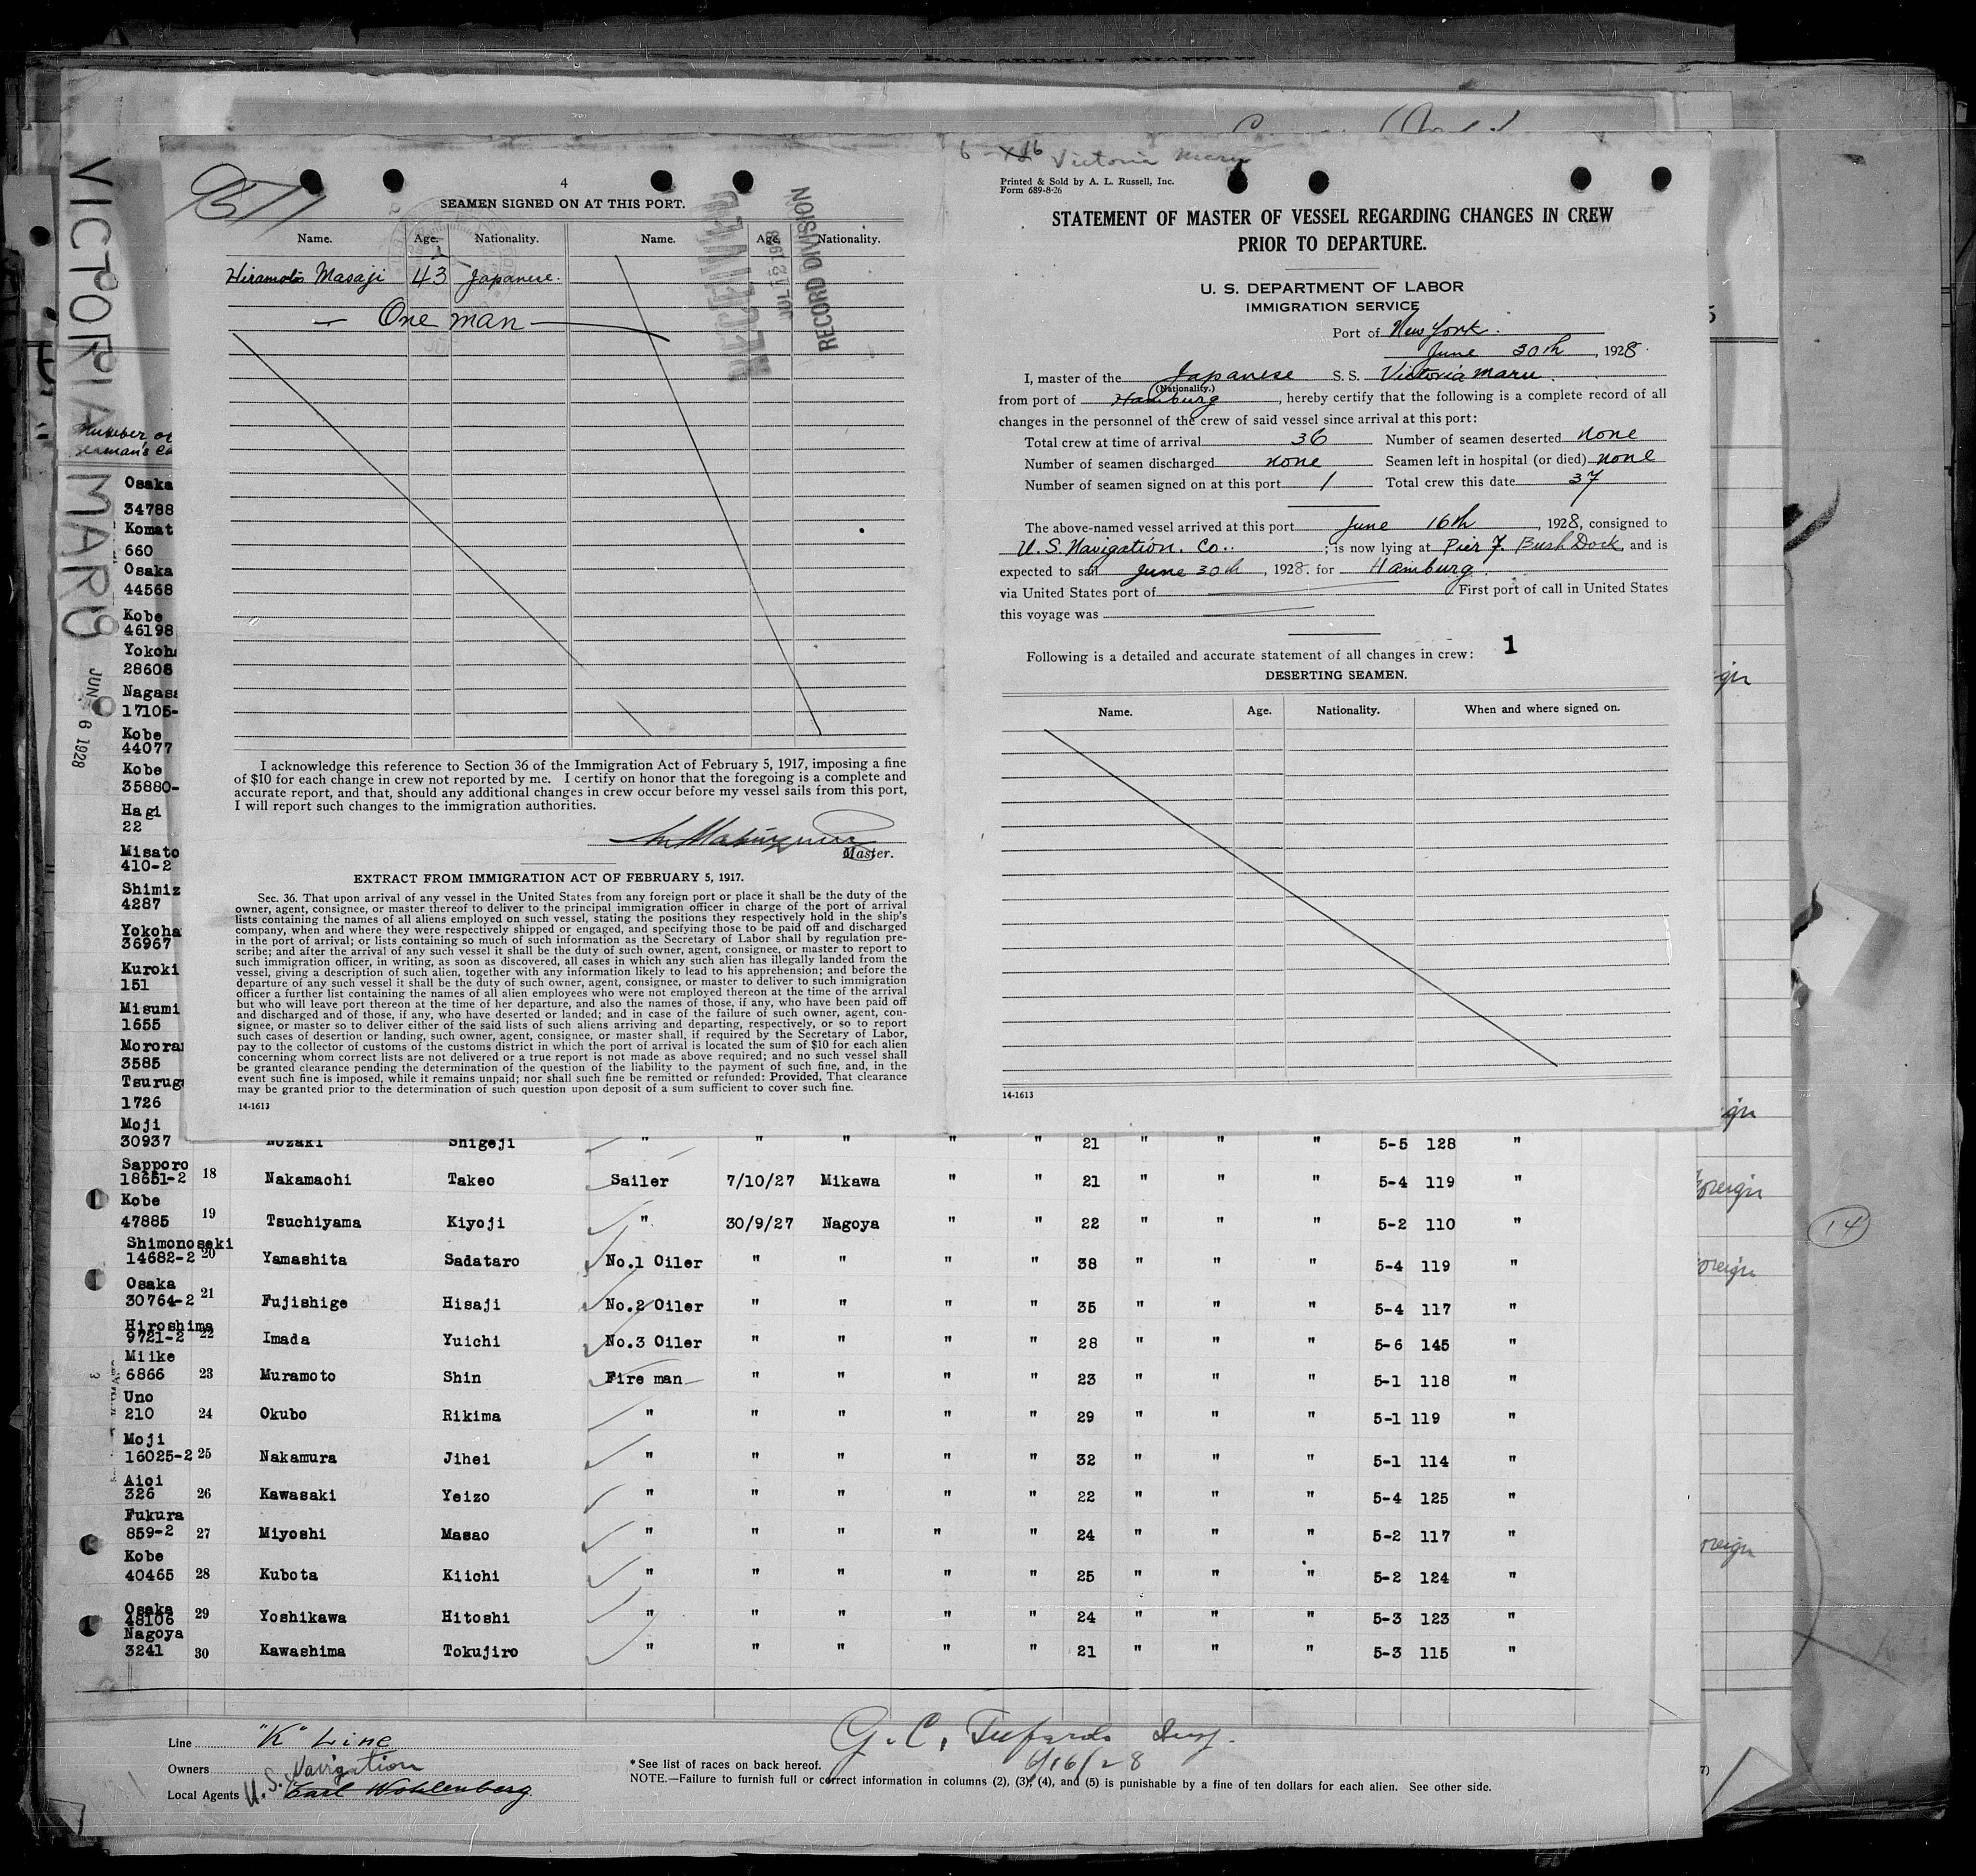 VICTORIA MARU
JUN 6 1928
Victoria Maru
4
SEAMEN SIGNED ON AT THIS PORT.
Name. Age. Nationality. Name. Age. Nationality.
Hiramoto Masaji 43 Japanese.
— One man —
RECORD DIVISION
I acknowledge this reference to Section 36 of the Immigration Act of February 5, 1917, imposing a fine
of $10 for each change in crew not reported by me. I certify on honor that the foregoing is a complete and
accurate report, and that, should any additional changes in crew occur before my vessel sails from this port,
I will report such changes to the immigration authorities.
Master.
EXTRACT FROM IMMIGRATION ACT OF FEBRUARY 5, 1917.
Sec. 36. That upon arrival of any vessel in the United States from any foreign port or place it shall be the duty of the
owner, agent, consignee, or master thereof to deliver to the principal immigration officer in charge of the port of arrival
lists containing the names of all aliens employed on such vessel, stating the positions they respectively hold in the ship's
company, when and where they were respectively shipped or engaged, and specifying those to be paid off and discharged
in the port of arrival; or lists containing so much of such information as the Secretary of Labor shall by regulation pre-
scribe; and after the arrival of any such vessel it shall be the duty of such owner, agent, consignee, or master to report to
such immigration officer, in writing, as soon as discovered, all cases in which any such alien has illegally landed from the
vessel, giving a description of such alien, together with any information likely to lead to his apprehension; and before the
departure of any such vessel it shall be the duty of such owner, agent, consignee, or master to deliver to such immigration
officer a further list containing the names of all alien employees who were not employed thereon at the time of the arrival
but who will leave port thereon at the time of her departure, and also the names of those, if any, who have been paid off
and discharged and of those, if any, who have deserted or landed; and in case of the failure of such owner, agent, con-
signee, or master so to deliver either of the said lists of such aliens arriving and departing, respectively, or so to report
such cases of desertion or landing, such owner, agent, consignee, or master shall, if required by the Secretary of Labor,
pay to the collector of customs of the customs district in which the port of arrival is located the sum of $10 for each alien
concerning whom correct lists are not delivered or a true report is not made as above required; and no such vessel shall
be granted clearance pending the determination of the question of the liability to the payment of such fine, and, in the
event such fine is imposed, while it remains unpaid; nor shall such fine be remitted or refunded: Provided, That clearance
may be granted prior to the determination of such question upon deposit of a sum sufficient to cover such fine.
14-1613
Printed & Sold by A. L. Russell, Inc.
Form 689-8-26
STATEMENT OF MASTER OF VESSEL REGARDING CHANGES IN CREW
PRIOR TO DEPARTURE.
U. S. DEPARTMENT OF LABOR
IMMIGRATION SERVICE
Port of New York.
June 30th, 1928.
I, master of the Japanese S. S. Victoria Maru.
(Nationality.)
from port of Hamburg, hereby certify that the following is a complete record of all
changes in the personnel of the crew of said vessel since arrival at this port:
Total crew at time of arrival 36 Number of seamen deserted none
Number of seamen discharged none Seamen left in hospital (or died) none
Number of seamen signed on at this port 1 Total crew this date 37
The above-named vessel arrived at this port June 16th, 1928, consigned to
U. S. Navigation. Co..; is now lying at Pier 7. Bush Dock, and is
expected to sail June 30th, 1928. for Hamburg.
via United States port of First port of call in United States
this voyage was
Following is a detailed and accurate statement of all changes in crew: 1
DESERTING SEAMEN.
Name. Age. Nationality. When and where signed on.
14-1613
Number of
Seaman's Ca
Osaka
34788
Komat
660
Osaka
44568
Kobe
46198
Yokoha
28608
Nagasa
17105-
Kobe
44077
Kobe
35880-
Hagi
22
Misato
410-2
Shimiz
4287
Yokoha
36967
Kuroki
151
Misumi
1655
Mororan
3585
Tsurug
1726
Moji
30937 Nozaki Shigeji " " " " " 21 " " " 5-5 128 "
Sapporo
18651-2 18 Nakamachi Takeo Sailer 7/10/27 Mikawa " " 21 " " " 5-4 119 "
Kobe
47885 19 Tsuchiyama Kiyoji " 30/9/27 Nagoya " " 22 " " " 5-2 110 "
Shimonoseki
14682-2 20 Yamashita Sadataro No.1 Oiler " " " " 38 " " " 5-4 119 "
Osaka
30764-2 21 Fujishige Hisaji No.2 Oiler " " " " 35 " " " 5-4 117 "
Hiroshima
9721-2 22 Imada Yuichi No.3 Oiler " " " " 28 " " " 5-6 145 "
Miike
6866 23 Muramoto Shin Fire man " " " " 23 " " " 5-1 118 "
Uno
210 24 Okubo Rikima " " " " " 29 " " " 5-1 119 "
Moji
16025-2 25 Nakamura Jihei " " " " " 32 " " " 5-1 114 "
Aioi
326 26 Kawasaki Yeizo " " " " " 22 " " " 5-4 125 "
Fukura
859-2 27 Miyoshi Masao " " " " " 24 " " " 5-2 117 "
Kobe
40465 28 Kubota Kiichi " " " " " 25 " " " 5-2 124 "
Osaka
48106 29 Yoshikawa Hitoshi " " " " " 24 " " " 5-3 123 "
Nagoya
3241 30 Kawashima Tokujiro " " " " " 21 " " " 5-3 115 "
foreign
14
Line "K" Line
Owners
Local Agents U. S. Navigation
Earl Wohlenberg
G. C.
6/16/28
*See list of races on back hereof.
NOTE.—Failure to furnish full or correct information in columns (2), (3), (4), and (5) is punishable by a fine of ten dollars for each alien. See other side.